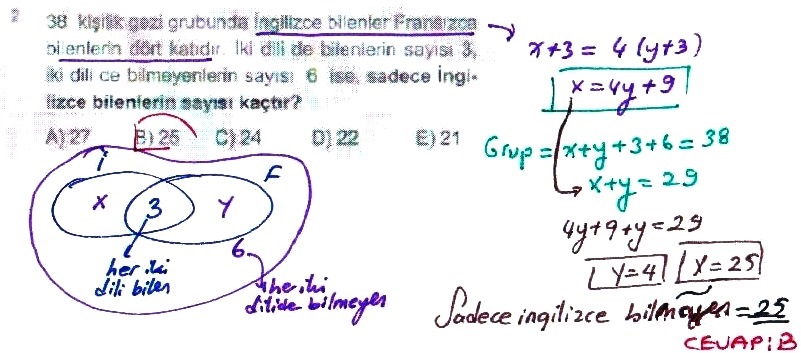 2
38 kişilik gezi grubunda İngilizce bilenler Fransızca
bilenlerin dört katıdır. İki dili de bilenlerin sayısı 3,
iki dili de bilmeyenlerin sayısı 6 ise, sadece İngi-
lizce bilenlerin sayısı kaçtır?
A) 27 B) 25 C) 24 D) 22 E) 21
x+3 = 4(y+3)
x=4y+9
Grup = x+y+3+6=38
x+y=29
4y+9+y=29
Y=4 X=25
Sadece ingilizce = 25
CEVAP: B
İ F
X 3 Y
6
her iki
dili bilen
her iki
dilide bilmeyen